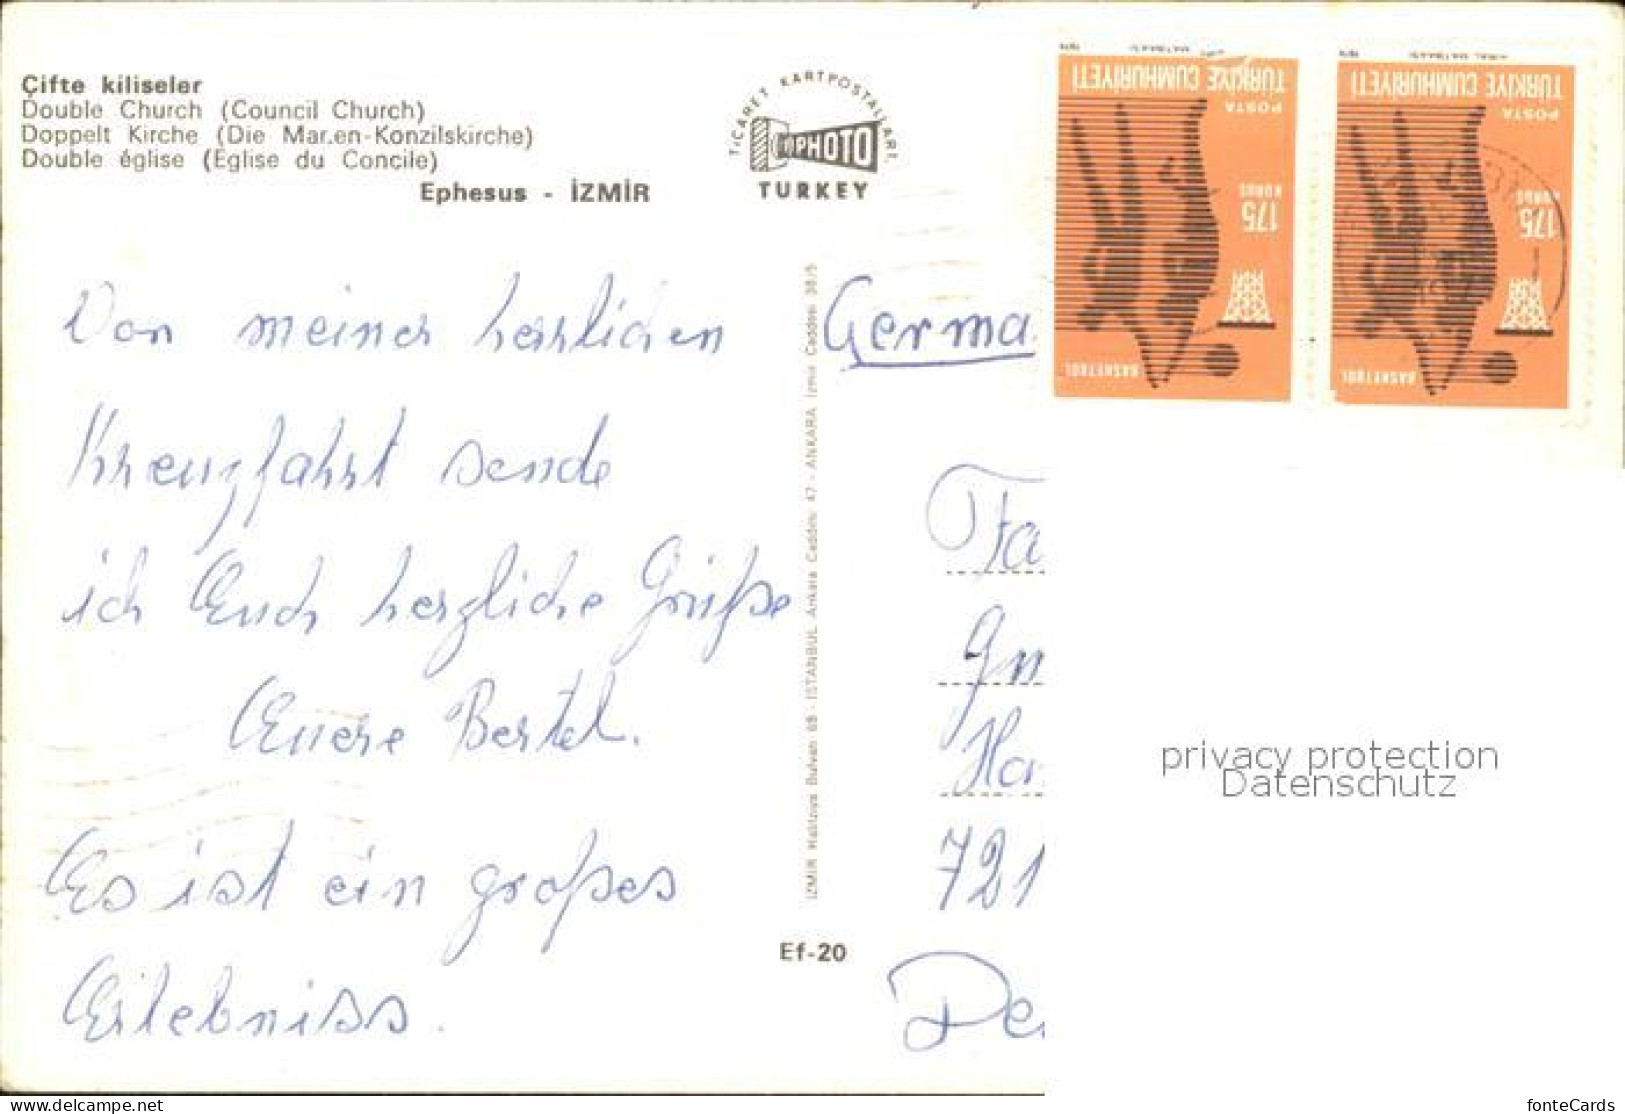 Çifte kiliseler
Double Church (Council Church)
Doppelt Kirche (Die Mar.en-Konzilskirche)
Double église (Eglise du Concile)
Ephesus - İZMİR
TİCARET KARTPOSTALLARI
PHOTO
TURKEY
Von meiner herrlichen
Kreuzfahrt sende
ich Euch herzliche Grüße
Euere Bertel.
Es ist ein großes
Erlebniss.
İZMİR Halitziya Bulvarı 68 - İSTANBUL Ankara Caddesi 47 - ANKARA İzmir Caddesi 38/5
Ef-20
Germa
TÜRKİYE CUMHURİYETİ
POSTA
175
KURUŞ
BASKETBOL
TÜRKİYE CUMHURİYETİ
POSTA
175
KURUŞ
BASKETBOL
Fa
Gm
Ha
721
De
privacy protection
Datenschutz
DELCAMPE.NET
fonteCards